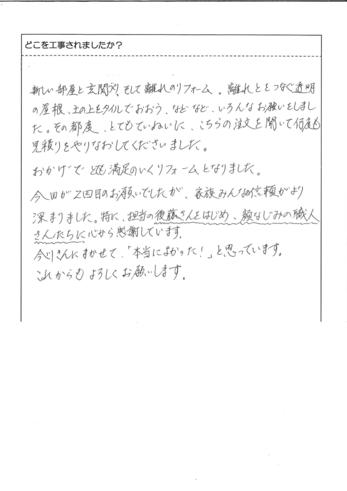 どこを工事されましたか？
新しい部屋と玄関
そして離れのリフォーム。離れとをつなぐ透明
の屋根、土の上をタイルでおおう、などなど、いろんなお願いをしまし
た。その都度、とてもていねいに、こちらの注文を聞いて何度も
見積りをやりなおしてくださいました。
おかげで とても満足のいくリフォームとなりました。
今回が2回目のお願いでしたが、家族みんなの信頼がより
深まりました。特に、担当の後藤さんをはじめ、顔なじみの職人
さんたちに心から感謝しています。
さんにまかせて、「本当によかった！」と思っています。
これからもよろしくお願いします。